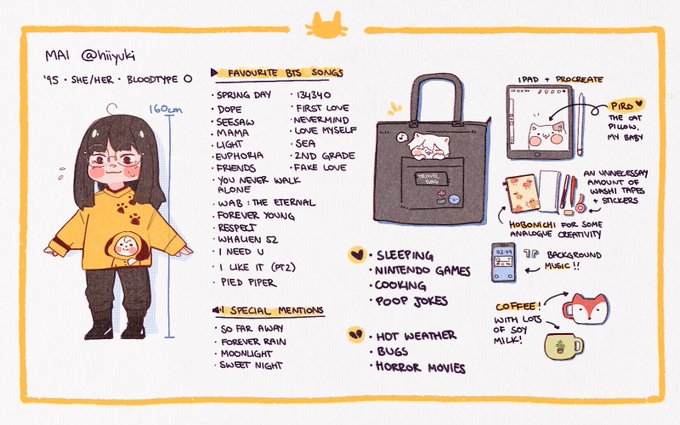 MAI @hiiyuki
'95 · SHE/HER · BLOODTYPE O
160cm
FAVOURITE BTS SONGS
· SPRING DAY
· DOPE
· SEESAW
· MAMA
· LIGHT
· EUPHORIA
· FRIENDS
· YOU NEVER WALK
ALONE
· WAB : THE ETERNAL
· FOREVER YOUNG
· RESPECT
· WHALIEN 52
· I NEED U
· I LIKE IT (PT2)
· PIED PIPER
· 134340
· FIRST LOVE
· NEVERMIND
· LOVE MYSELF
· SEA
· 2ND GRADE
· FAKE LOVE
SPECIAL MENTIONS
· SO FAR AWAY
· FOREVER RAIN
· MOONLIGHT
· SWEET NIGHT
TRAVEL
BAG
· SLEEPING
· NINTENDO GAMES
· COOKING
· POOP JOKES
· HOT WEATHER
· BUGS
· HORROR MOVIES
IPAD + PROCREATE
PIRO
THE CAT
PILLOW,
MY BABY
AN UNNECESSARY
AMOUNT OF
WASHI TAPES
+ STICKERS
HOBONICHI FOR SOME
ANALOGUE CREATIVITY
BACKGROUND
MUSIC !!
COFFEE!
WITH LOTS
OF SOY
MILK!